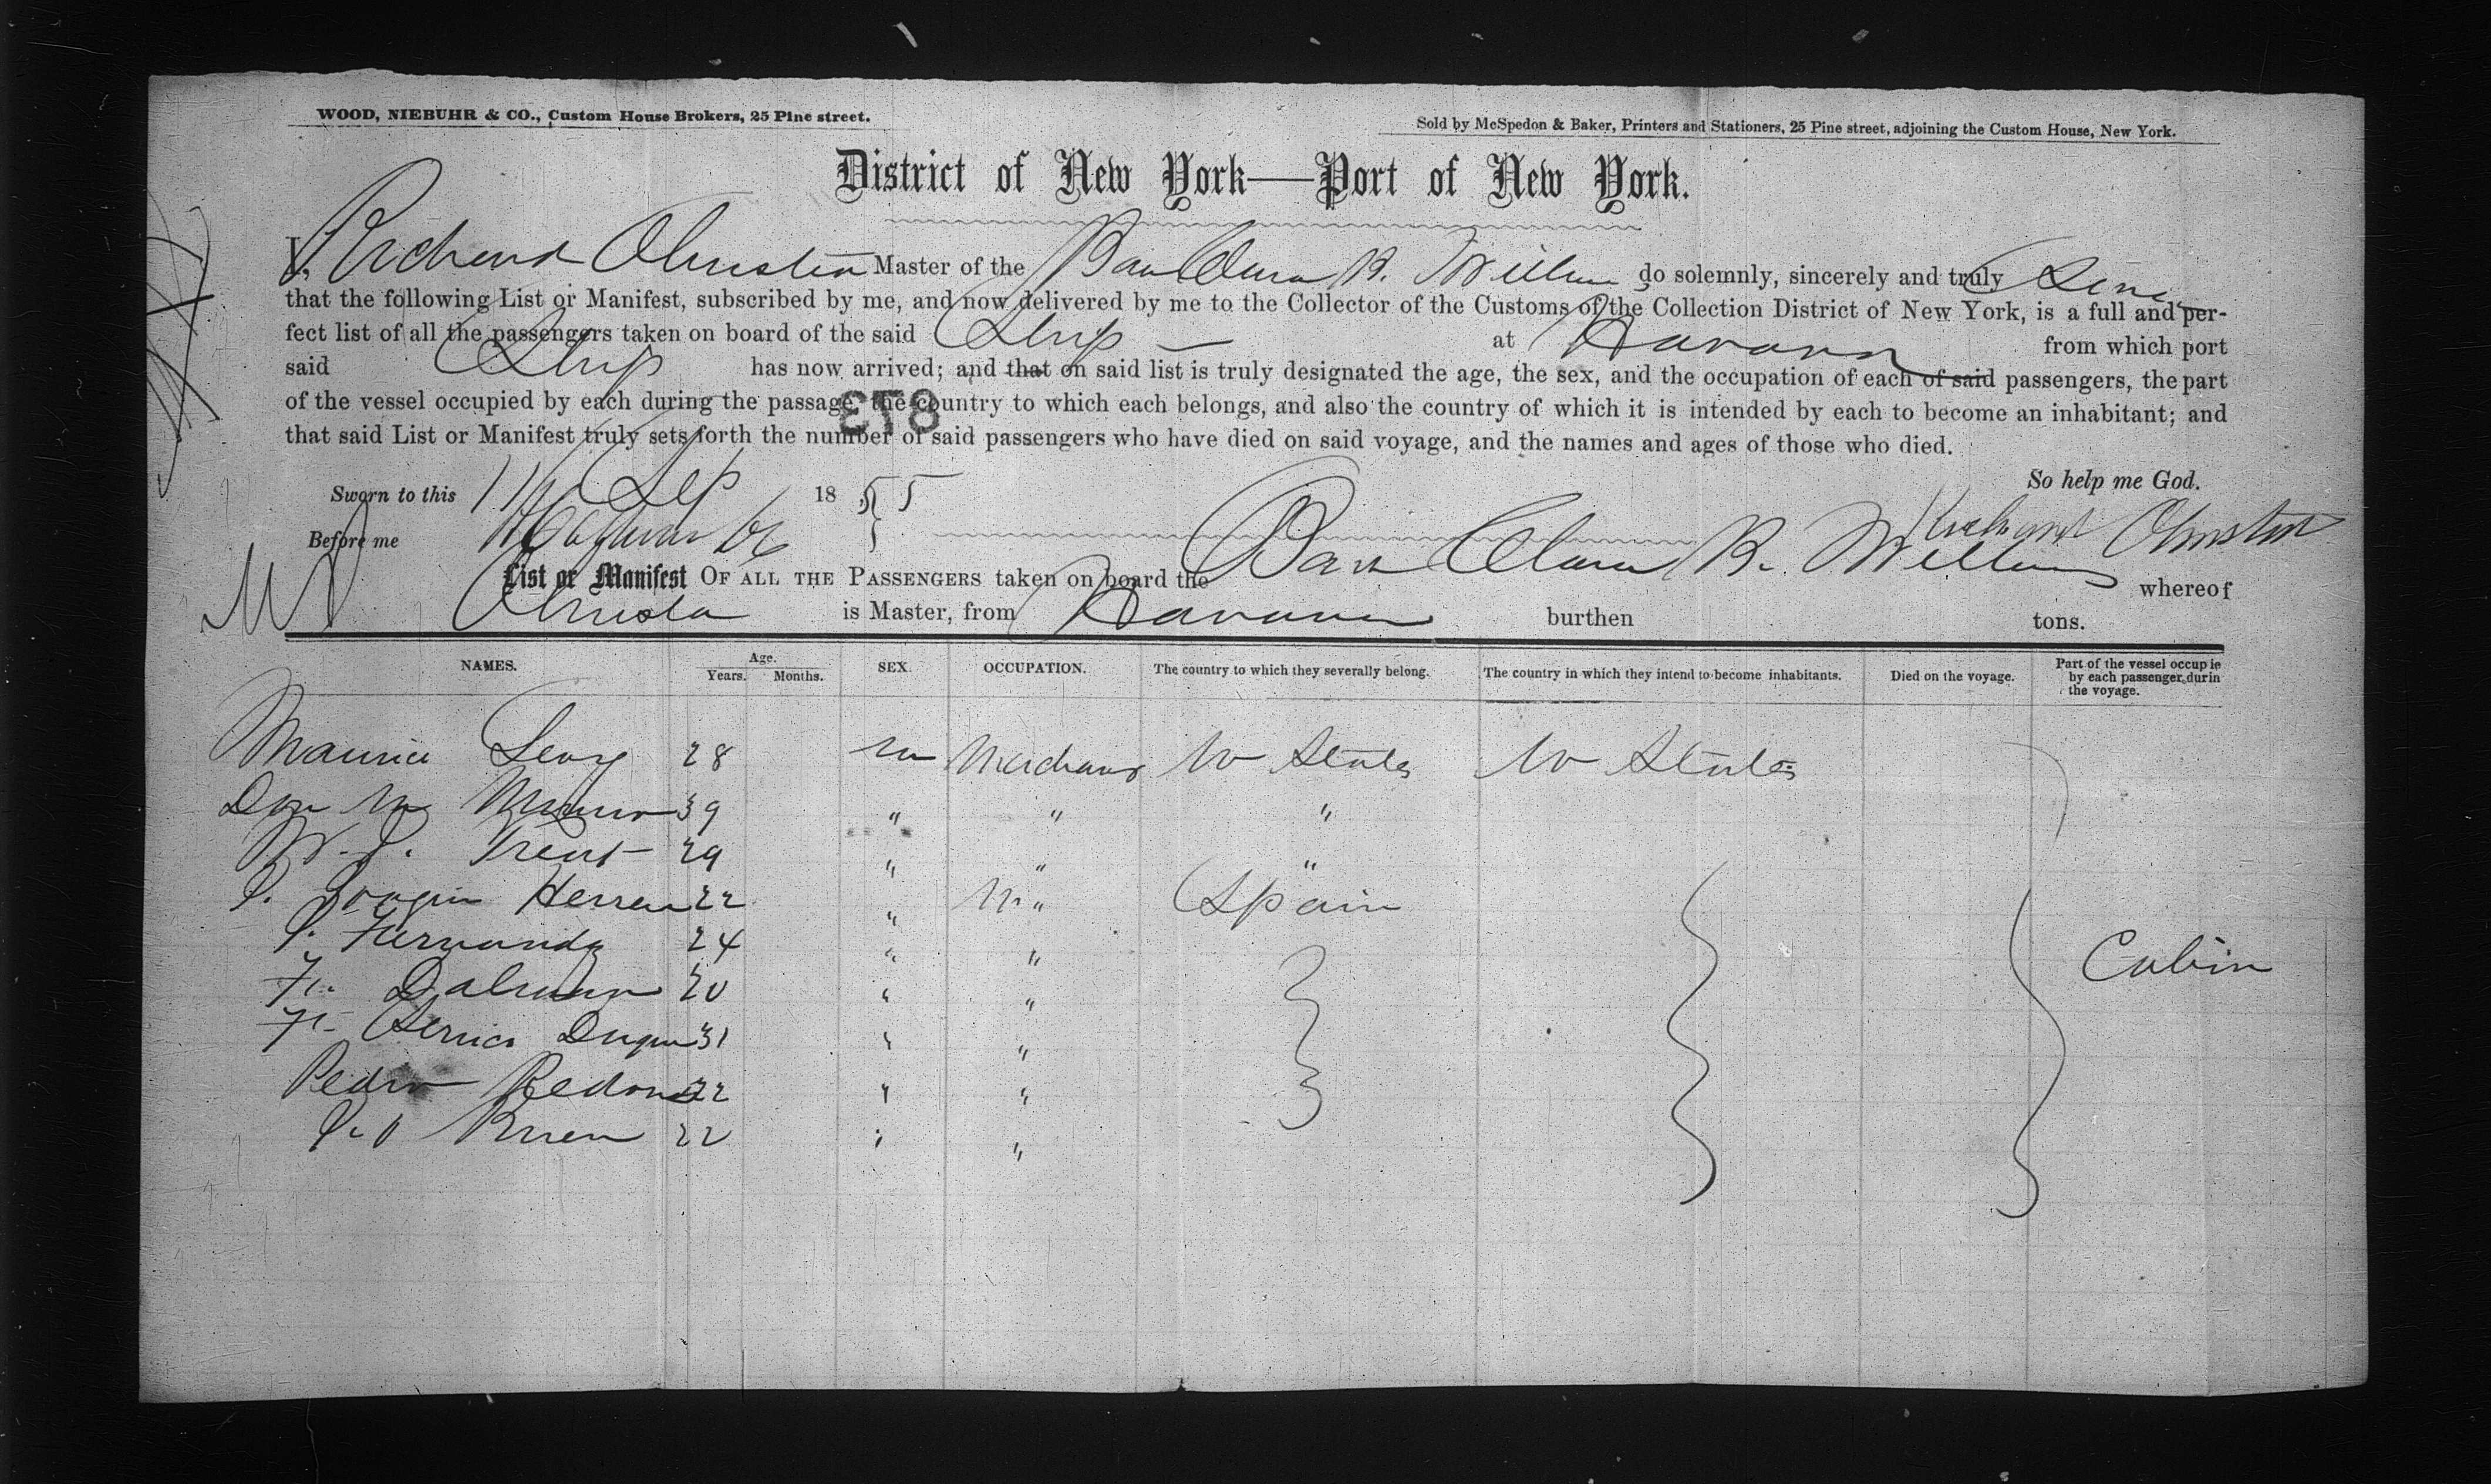 WOOD, NIEBUHR & CO., Custom House Brokers, 25 Pine street.
Sold by McSpedon & Baker, Printers and Stationers, 25 Pine street, adjoining the Custom House, New York.
District of New York—Port of New York.
I, Richard Olmsted Master of the Bark Clara B. Williams do solemnly, sincerely and truly
that the following List or Manifest, subscribed by me, and now delivered by me to the Collector of the Customs of the Collection District of New York, is a full and per-
fect list of all the passengers taken on board of the said Ship — at Havana from which port
said Ship has now arrived; and that on said list is truly designated the age, the sex, and the occupation of each of said passengers, the part
of the vessel occupied by each during the passage, the country to which each belongs, and also the country of which it is intended by each to become an inhabitant; and
873
that said List or Manifest truly sets forth the number of said passengers who have died on said voyage, and the names and ages of those who died.
So help me God.
Sworn to this 11 Sep 1855
Before me
Richard Olmsted
List or Manifest OF ALL THE PASSENGERS taken on board the Bark Clara B. Williams whereof
Olmsted is Master, from Havana burthen tons.
NAMES. Age. Years. Months. SEX. OCCUPATION. The country to which they severally belong. The country in which they intend to become inhabitants. Died on the voyage. Part of the vessel occupie by each passenger durin the voyage.
Maurice Levy 28 m Merchant U States U States
Don 39 " " "
W. J. Trent 29 " " "
Joaquin Herrera 22 " M " Spain
Fernandez 24 " "
Fr. Dalmau 20 " " Cabin
Fr. 31 " "
Pedro Redond 22 " "
22 " "